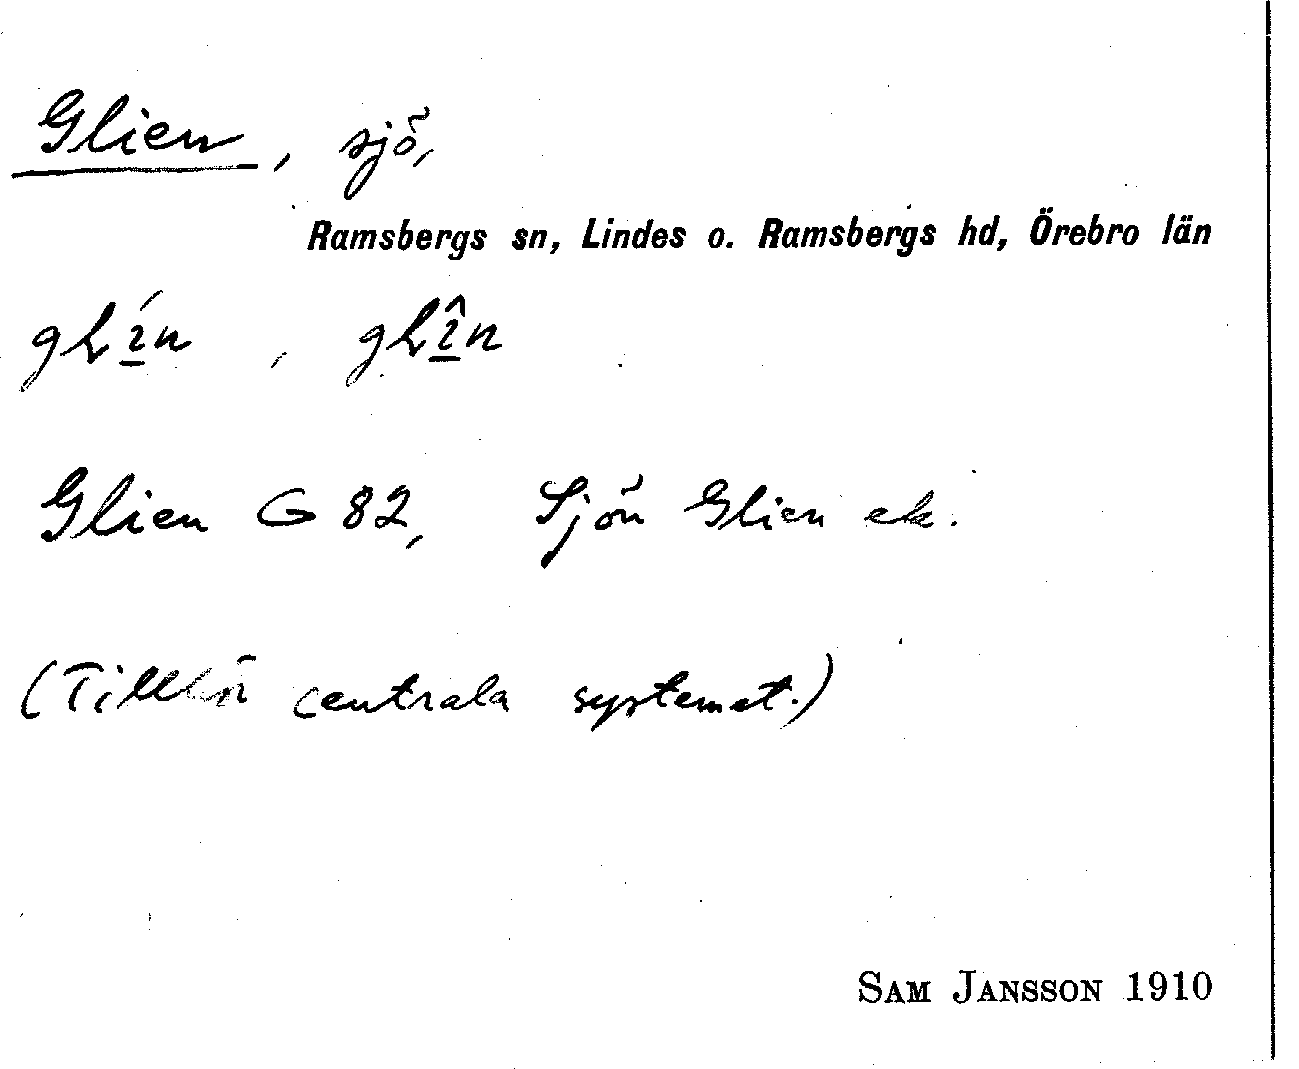 Glien, sjö,
Ramsbergs sn, Lindes o. Ramsbergs hd, Örebro län
Glien G 82, Sjön Glien ek.
(Tillhör centrala systemet.)
SAM JANSSON 1910